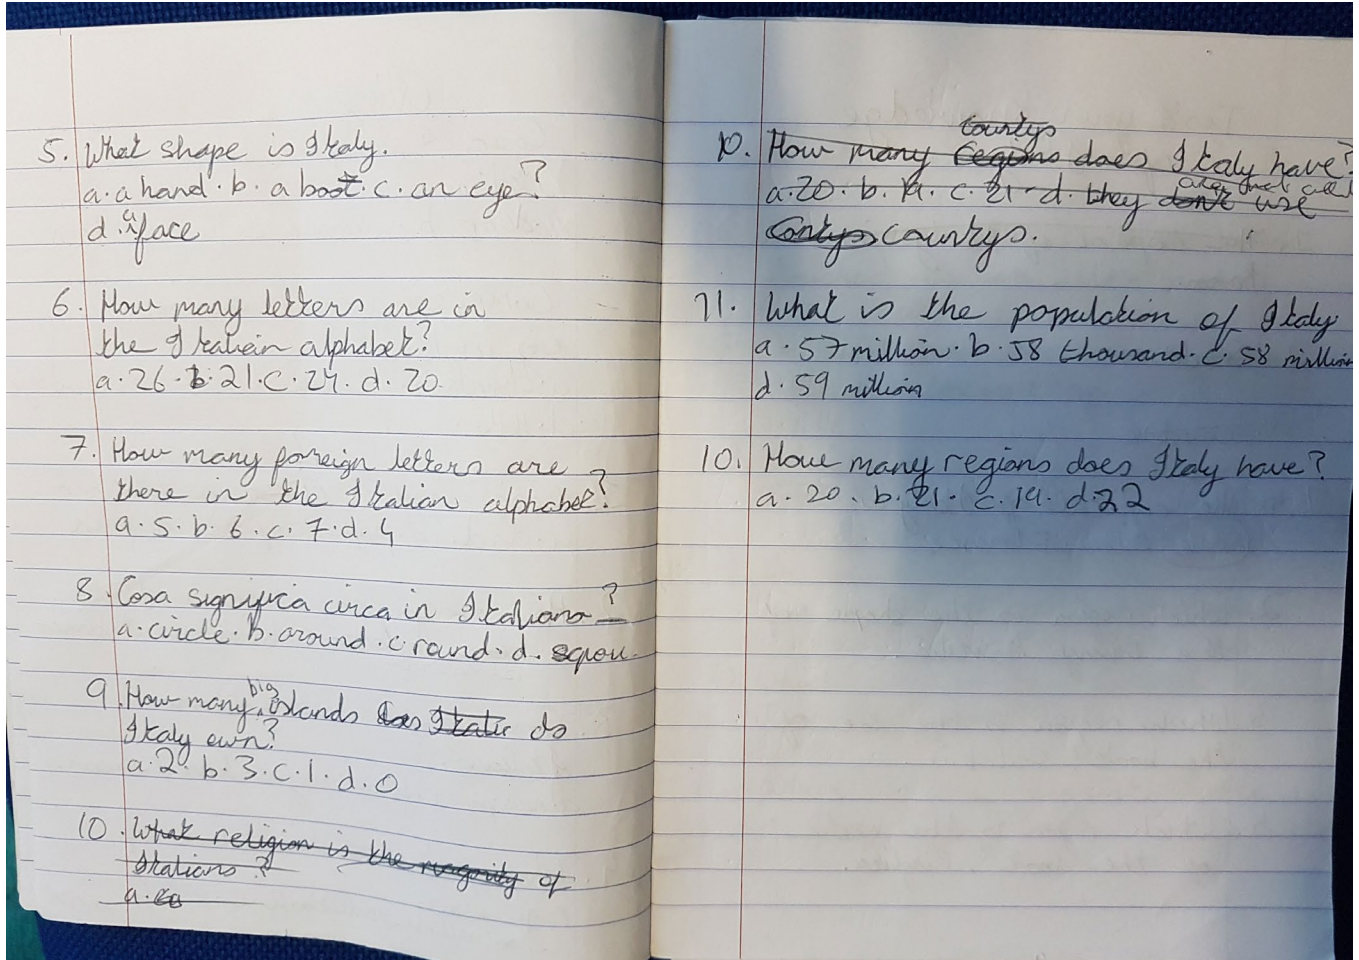 5. What shape is Italy.
a. a hand. b. a boot. c. an eye?
d. a face
6. How many letters are in
the Italian alphabet?
a. 26. b. 21. c. 24. d. 20.
7. How many foreign letters are
there in the Italian alphabet?
a. 5. b. 6. c. 7. d. 4
8. Cosa significa circa in Italiano?
a. circle. b. around. c. round. d. squou.
9. How many big islands does Italie do
Italy own?
a. 2. b. 3. c. 1. d. 0
10. What religion is the magority of
Italians?
a. ca
countys
10. How many regions does Italy have?
a. 20. b. 19. c. 21. d. they don't use
contys countys.
11. What is the population of Italy
a. 57 million. b. 58 thousand. c. 58 million
d. 59 million
10. How many regions does Italy have?
a. 20. b. 21. c. 19. d. 22